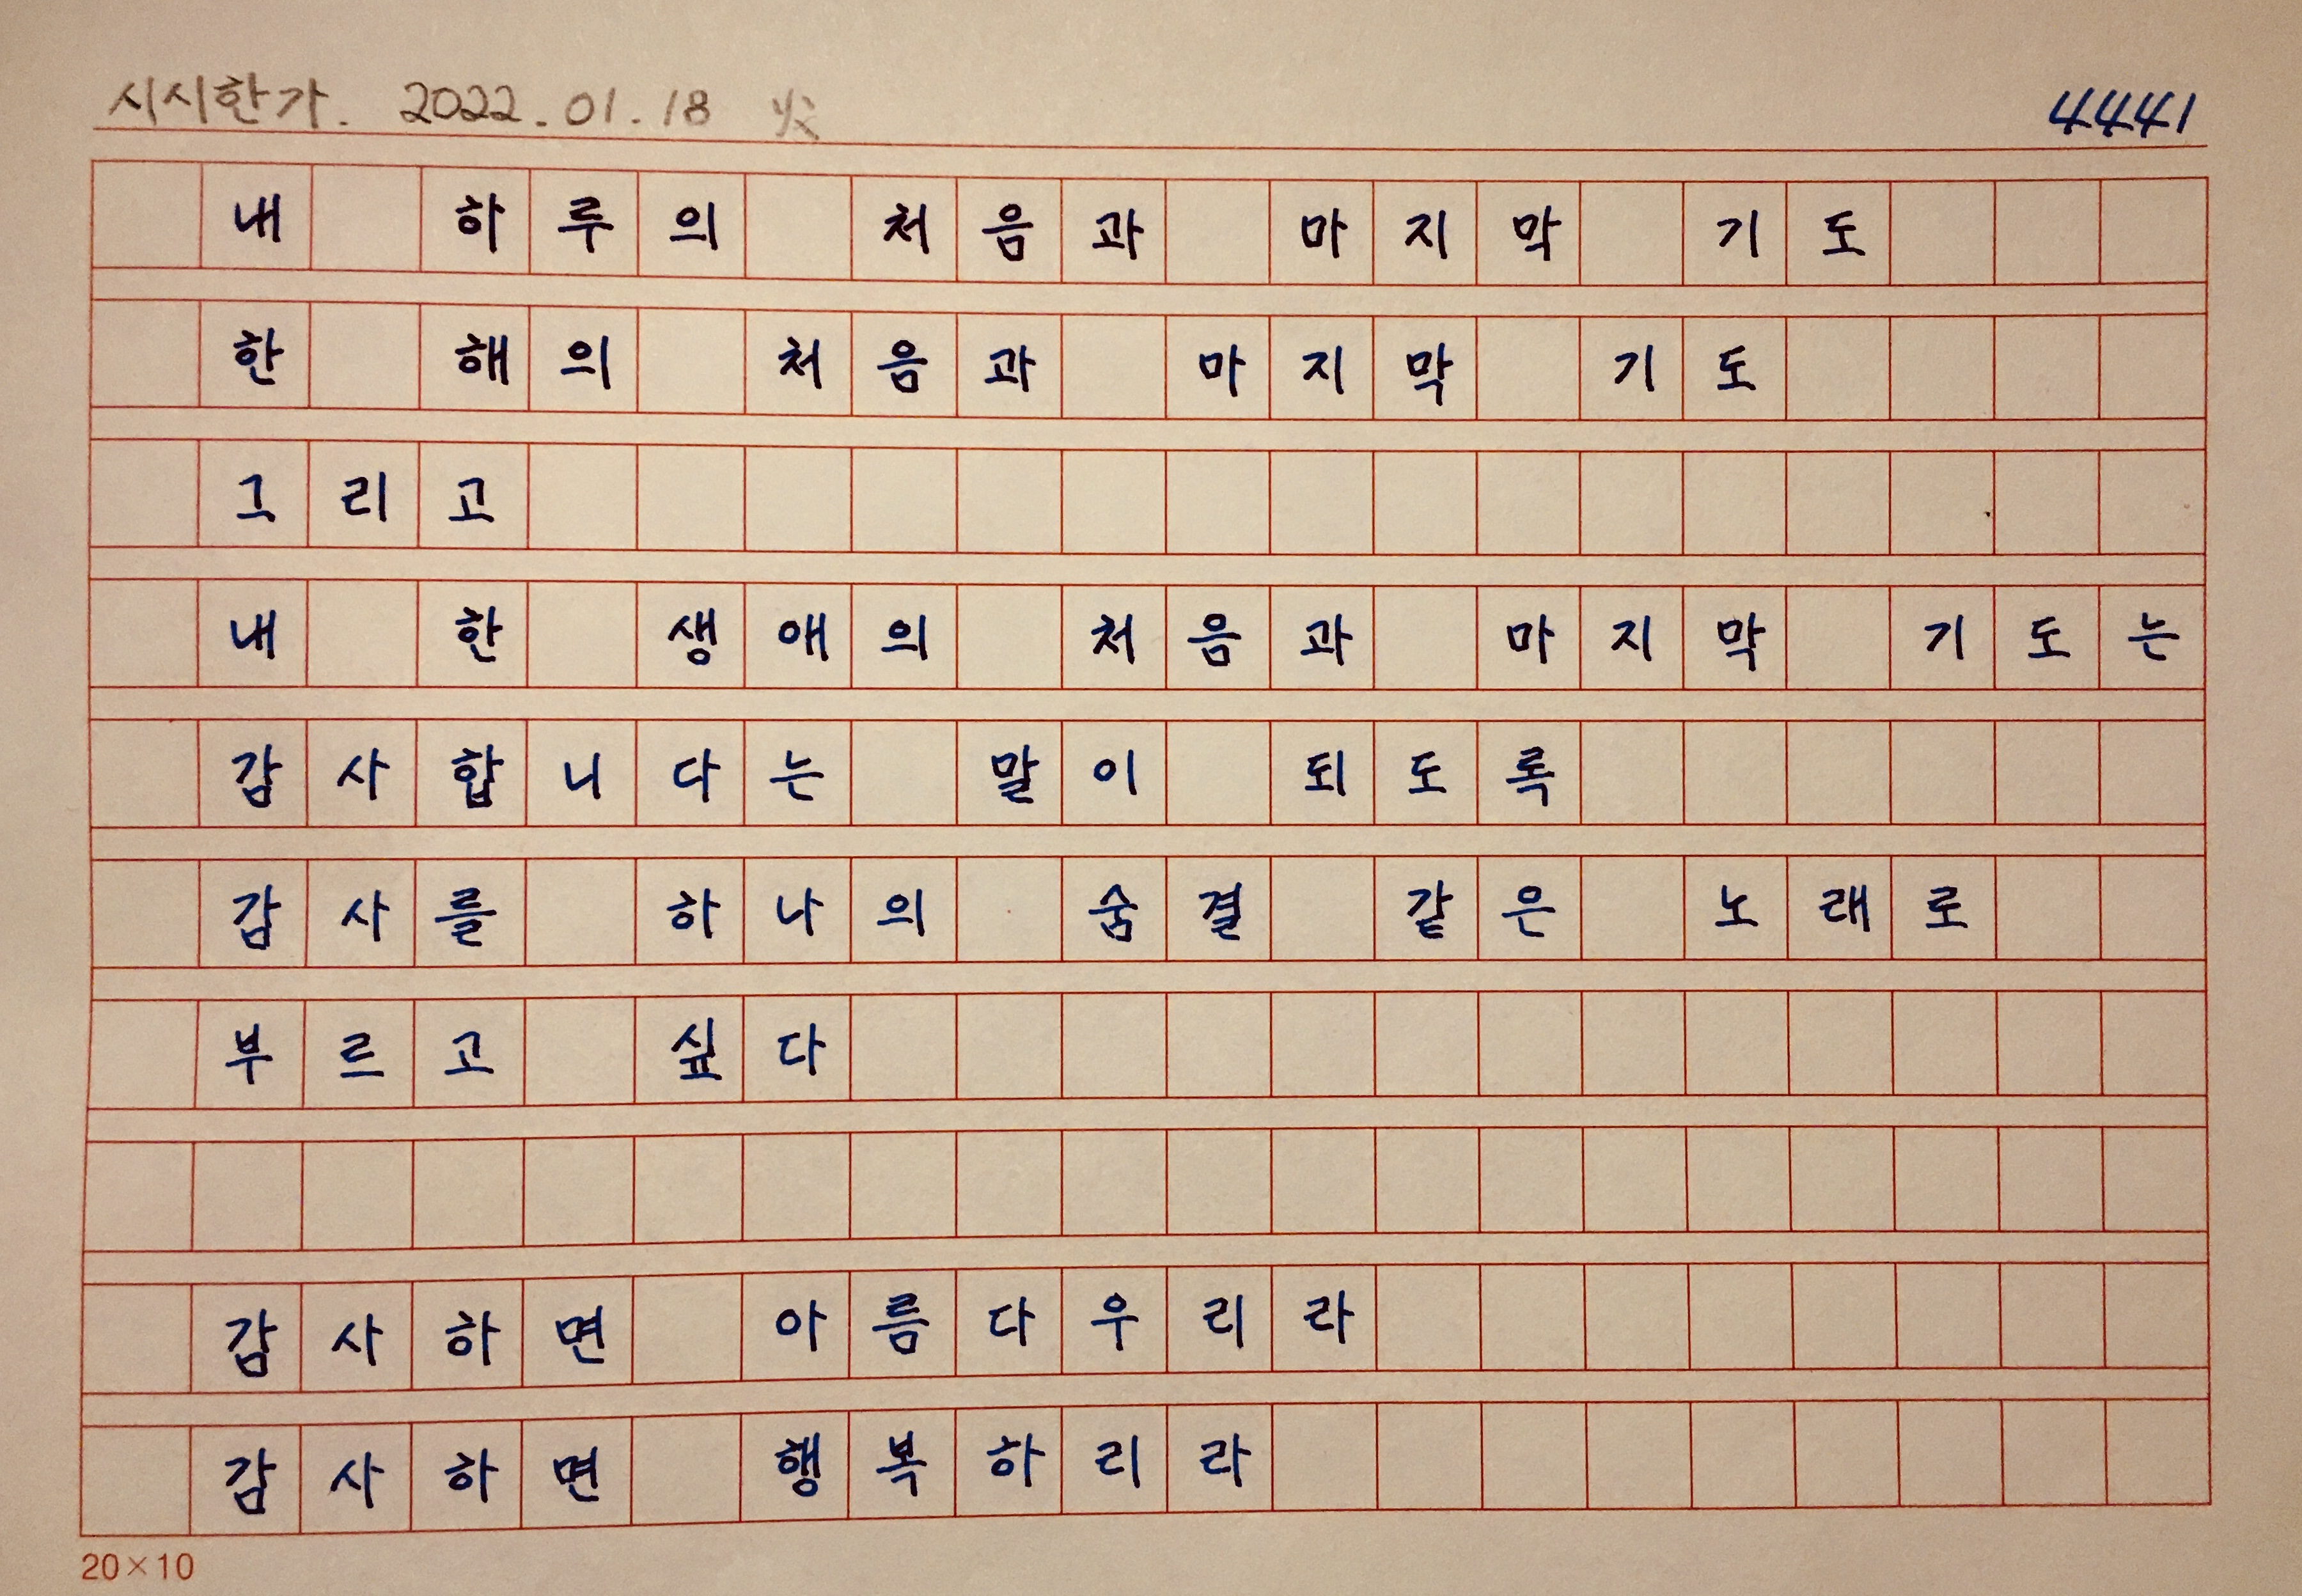 시시한가. 2022.01.18 火
4441
내 하루의 처음과 마지막 기도
한 해의 처음과 마지막 기도
그리고
내 한 생애의 처음과 마지막 기도는
감사합니다는 말이 되도록
감사를 하나의 숨결 같은 노래로
부르고 싶다
감사하면 아름다우리라
감사하면 행복하리라
20×10